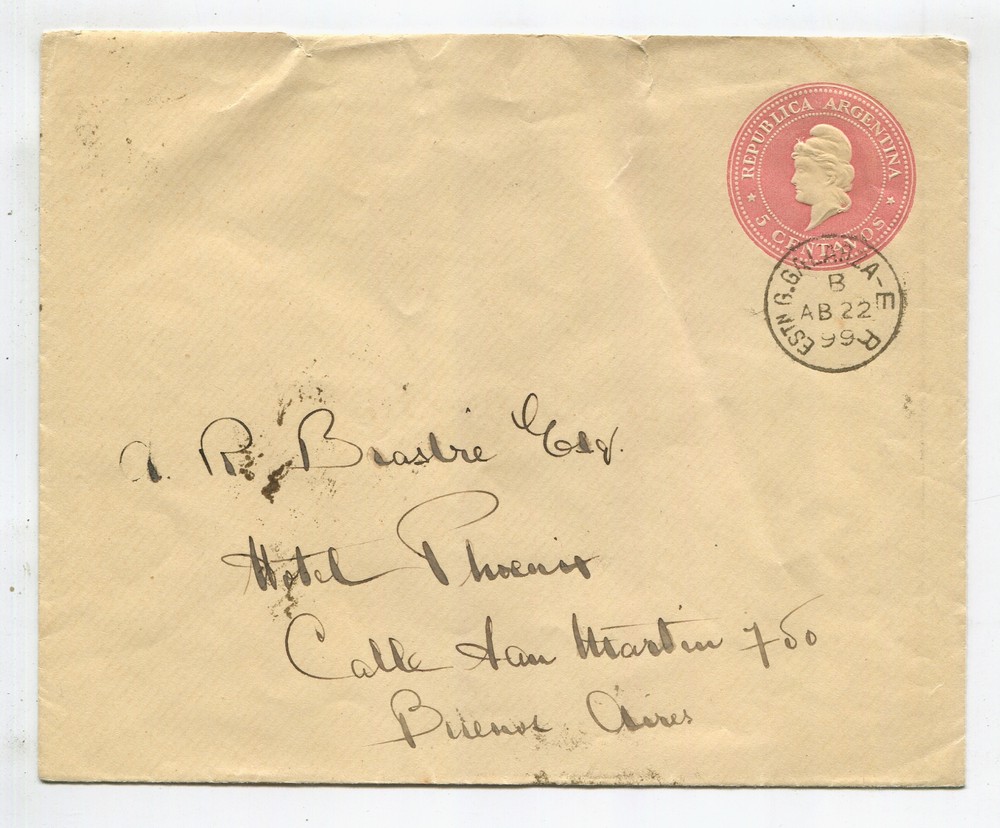 REPUBLICA ARGENTINA
★ 5 CENTAVOS ★
ESTN G. GALARZA - E R
B
AB 22
99
A. R. Esq.
Hotel Phoenix
Calle San Martin 750
Buenos Aires